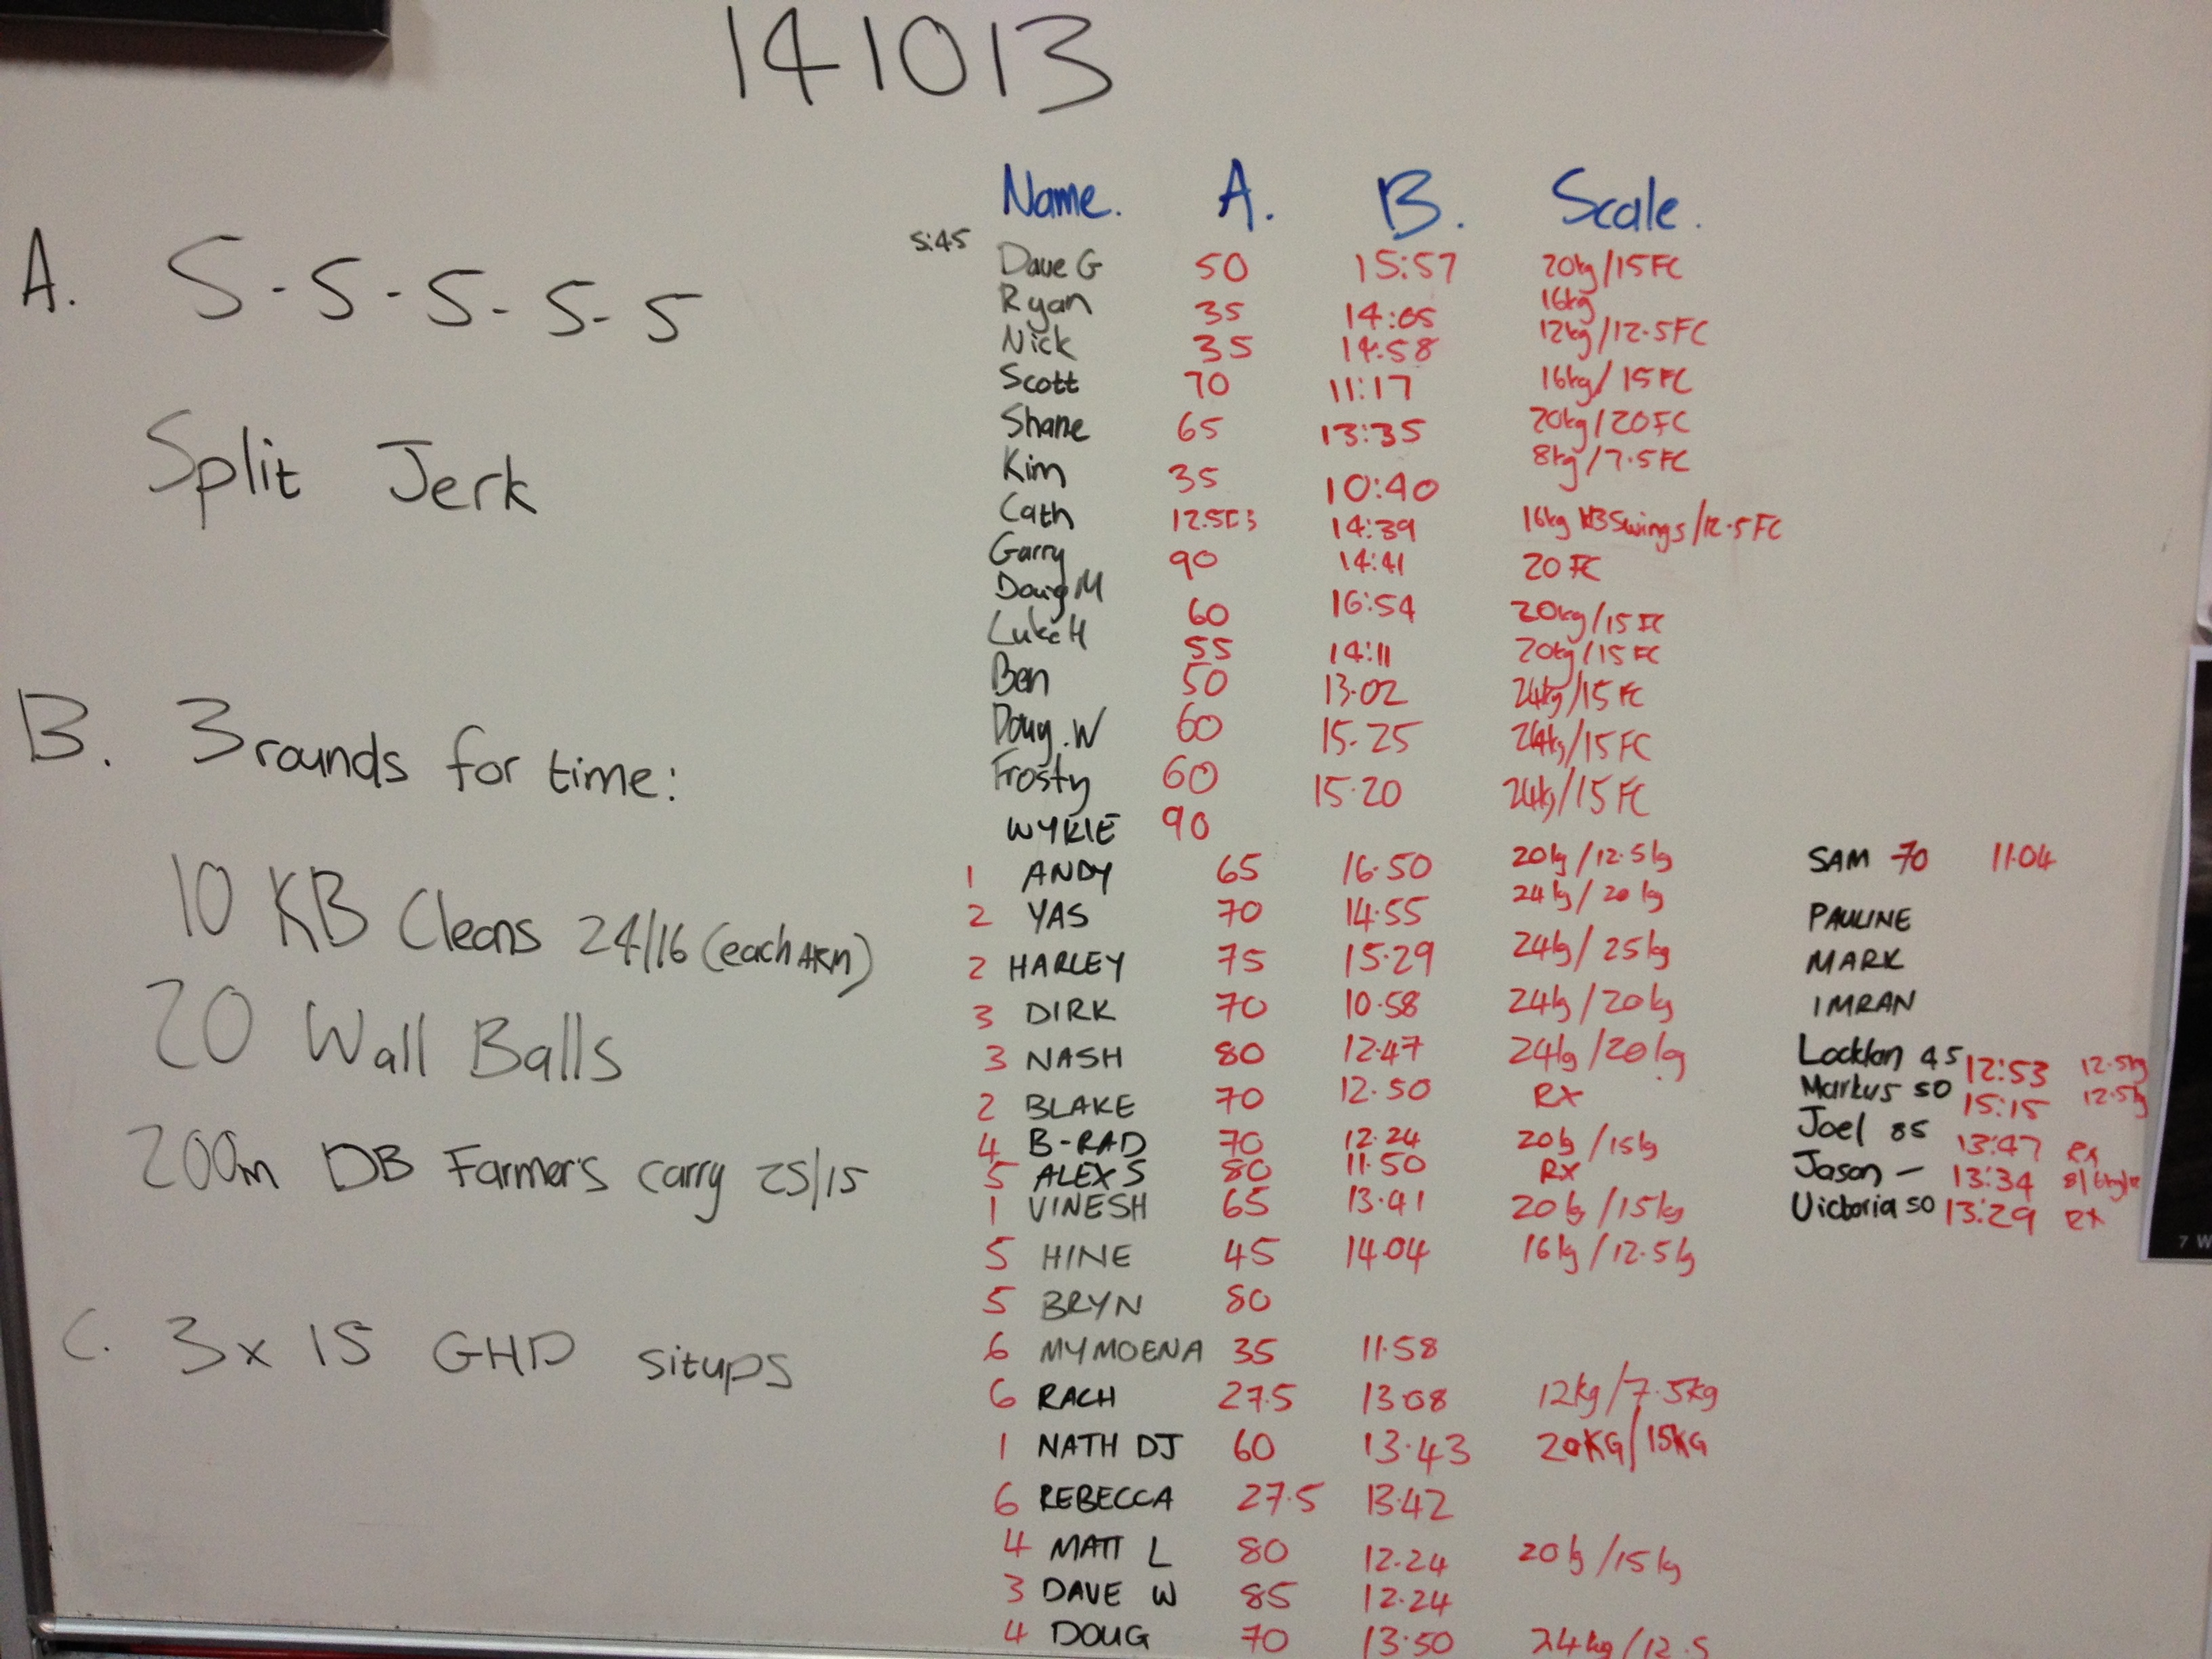 141013
A. 5-5-5-5-5
Split Jerk
B. 3 rounds for time:
10 KB Cleans 24/16 (each ARM)
20 Wall Balls
200m DB Farmer's carry 25/15
C. 3x 15 GHD situps
Name. A. B. Scale.
5:45
Dave G 50 15:57 20kg/15FC
Ryan 35 14:05 16kg
Nick 35 14:58 12kg/12.5FC
Scott 70 11:17 16kg/15FC
Shane 65 13:35 20kg/20FC
Kim 35 10:40 8kg/7.5FC
Cath 14:39 16kg KBSwings/12.5FC
Garry 90 14:41 20 FC
Doug M 60 16:54 20kg/15FC
Luke H 55 14:11 20kg/15FC
Ben 50 13.02 24kg/15FC
Doug.W 60 15.25 24kg/15FC
Frosty 60 15.20 24kg/15FC
WYKIE 90
1 ANDY 65 16.50 20kg/12.5kg
2 YAS 70 14.55 24kg/20kg
2 HARLEY 75 15.29 24kg/25kg
3 DIRK 70 10.58 24kg/20kg
3 NASH 80 12.47 24kg/20kg
2 BLAKE 70 12.50 RX
4 B-RAD 70 12.24 20kg/15kg
5 ALEX S 80 11.50 RX
1 VINESH 65 13.41 20kg/15kg
5 HINE 45 14.04 16kg/12.5kg
5 BRYN 80
6 MYMOENA 35 11.58
6 RACH 27.5 13.08 12kg/7.5kg
1 NATH DJ 60 13.43 20KG/15KG
6 REBECCA 27.5 13.42
4 MATT L 80 12.24 20kg/15kg
3 DAVE W 85 12.24
4 DOUG 70 13.50 24kg/12.5
SAM 70 11.04
PAULINE
MARK
IMRAN
Locklan 45 12:53 12.5kg
Markus 50 15:15 12.5kg
Joel 85 13:47 RX
Jason - 13:34
Victoria 50 13:29 RX
7 W